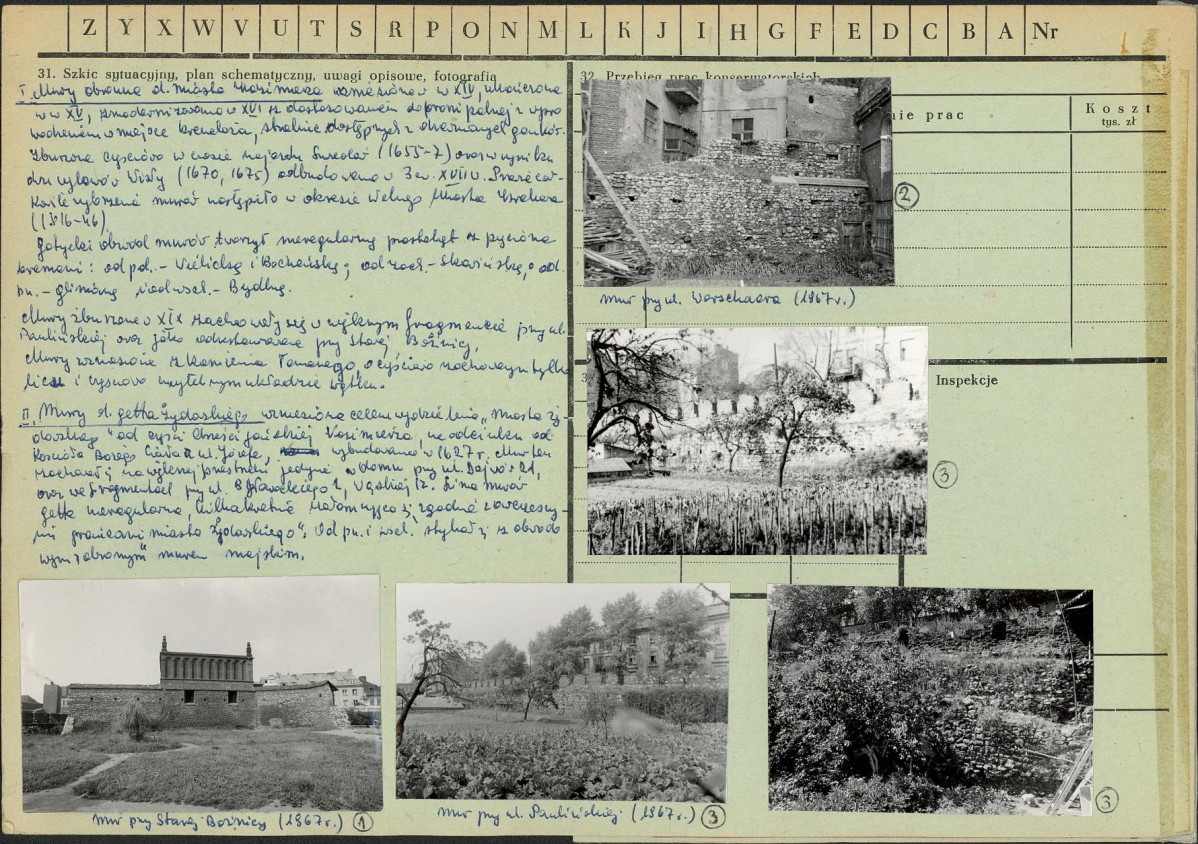 Z Y X W V U T S R P O N M L K J I H G F E D C B A Nr
31. Szkic sytuacyjny, plan schematyczny, uwagi opisowe, fotografia
I. Mury obronne d. miasta Kazimierza wzniesiono w XIV, ukończono
w XV, zmodernizowano w XVI z dostosowaniem do broni palnej z wpro
wadzeniem w miejsce krenelaża, strzelnic dostępnych z drewnianych ganków.
Zburzone częściowo w czasie najazdu Szwedów (1655-7) oraz w wyniku
dwu wylewów Wisły (1670, 1675) odbudowano w 3 ćw. XVII w. Prawie cał-
kowite wyburzenie murów nastąpiło w okresie Wolnego Miasta Krakowa
(1816-46)
Gotycki obwód murów tworzył nieregularny prostokąt z pięcioma
bramami: od pd. - Wielicką i Bocheńską; od zach. - Skawińską, od
pn. - Glinianą i od wsch. - Bydlną.
Mury zburzone w XIX zachowały się w większym fragmencie przy ul.
Paulińskiej oraz jako odrestaurowane przy Starej Bóżnicy,
Mury wzniesione z kamienia łamanego, o częściowo zachowanym tylko
licu i czysto czytelnym układzie wątku.
II. Mury d. getta żydowskiego wzniesione celem wydzielenia "miasta ży-
dowskiego" od części chrześcijańskiej Kazimierza, na odcinku od
Kościoła Bożego Ciała z ul. Józefa, wybudowano w 1627 r. Mur ten
zachował się na większej przestrzeni jedynie w domu przy ul. Dajwór 21,
oraz we fragmentach przy ul. B. Wąska 12. Linia murów
getta nieregularna, kilkakrotnie załamująca się, zgodna z ówczesny-
mi granicami miasta żydowskiego". Od pn. i wsch. stykał się z obwodo
wym "obronnym" murem miejskim.
32. Przebieg prac konserwatorskich
nie prac
Koszt
tys. zł
2
mur przy ul. Warschauera (1967 r.)
3
Inspekcje
mur przy Starej Bożnicy (1967 r.) 1
mur przy ul. Paulińskiej (1967 r.) 3
3